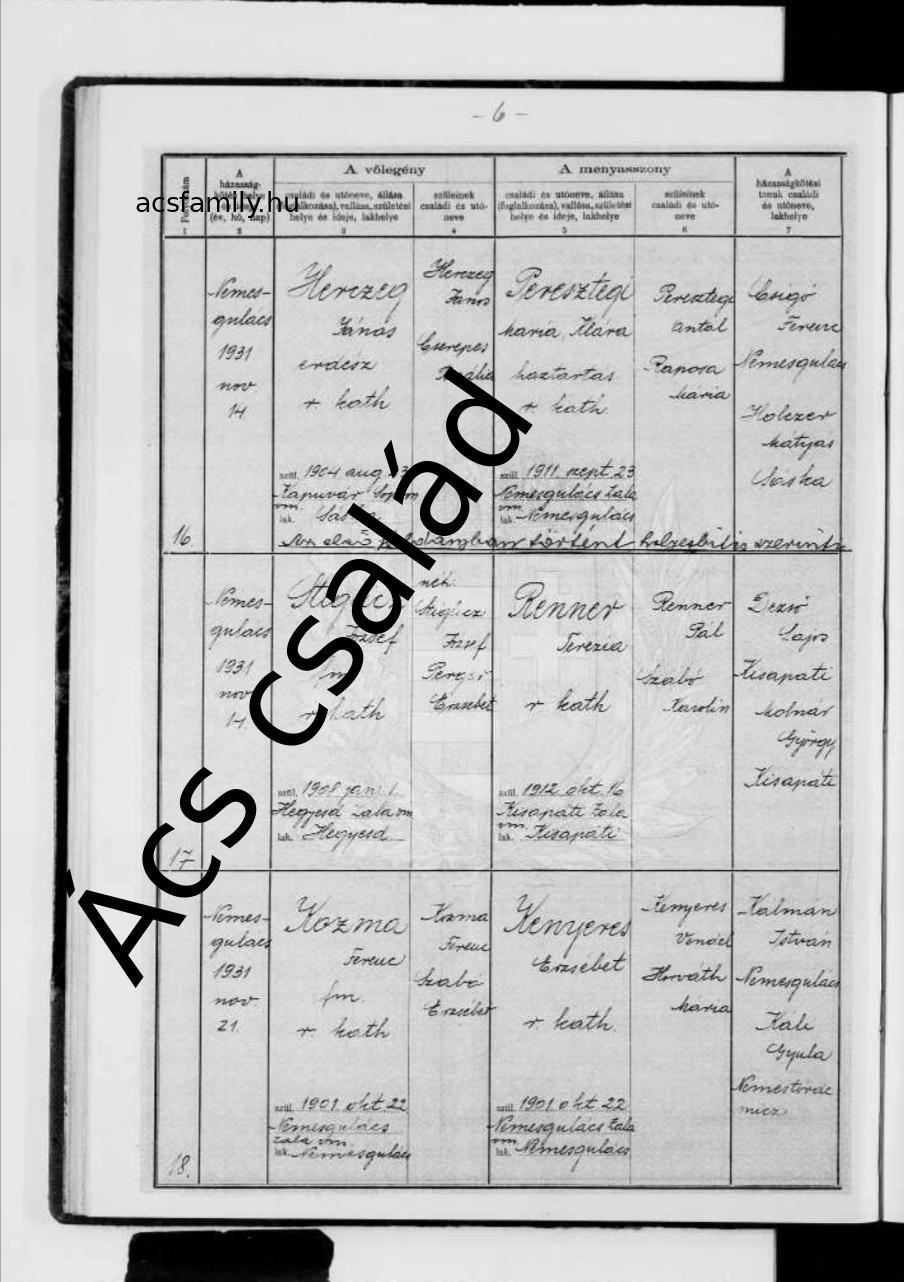 - 6 -
acsfamily.hu
Ács család
A vőlegény
A menyasszony
A házasságkötési tanuk családi és utóneve, lakhelye
családi és utóneve, állása
vallása, születési
helye és ideje, lakhelye
szüleinek
családi és utó-
neve
családi és utóneve, állása
(foglalkozása), vallása, születési
helye és ideje, lakhelye
szüleinek
családi és utó-
neve
1 2 3 4 5 6 7
16.
Nemes-
gulács
1931
nov.
14.
Herczeg
János
erdész
r. kath
szül. 1904 aug.
Kapuvár
lak.
Herczeg
János
Cserepes
Peresztegi
Mária Klára
háztartás
r. kath.
szül. 1911. szept. 23
Nemesgulács Zala
vm.
lak. Nemesgulács
Peresztegi
Antal
Raposa
Mária
Csigó
Ferenc
Nemesgulács
Holczer
Mátyás
Sáska
történt helyesbítés szerint
17.
Nemes-
gulács
1931
nov.
14.
József
r. kath
szül. 1908 jan. 1.
Hegyesd Zala vm
lak. Hegyesd
néh.
Stiglicz
József
Erzsébet
Renner
Terézia
r. kath
szül. 1912. okt. 16
Kisapáti Zala
vm.
lak. Kisapáti
Renner
Pál
Szabó
Karolin
Dezső
Lajos
Kisapáti
Molnár
György
Kisapáti
18.
Nemes-
gulács
1931
nov.
21.
Kozma
Ferenc
fm.
r. kath
szül. 1901. okt. 22
Nemesgulács
Zala vm.
lak. Nemesgulács
Kozma
Ferenc
Szabó
Erzsébet
Kenyeres
Erzsébet
r. kath.
szül. 1901 okt. 22
Nemesgulács Zala
vm.
lak. Nemesgulács
Kenyeres
Vendel
Horváth
Mária
Kálmán
István
Nemesgulács
Káli
Gyula
Nemestörde
micz